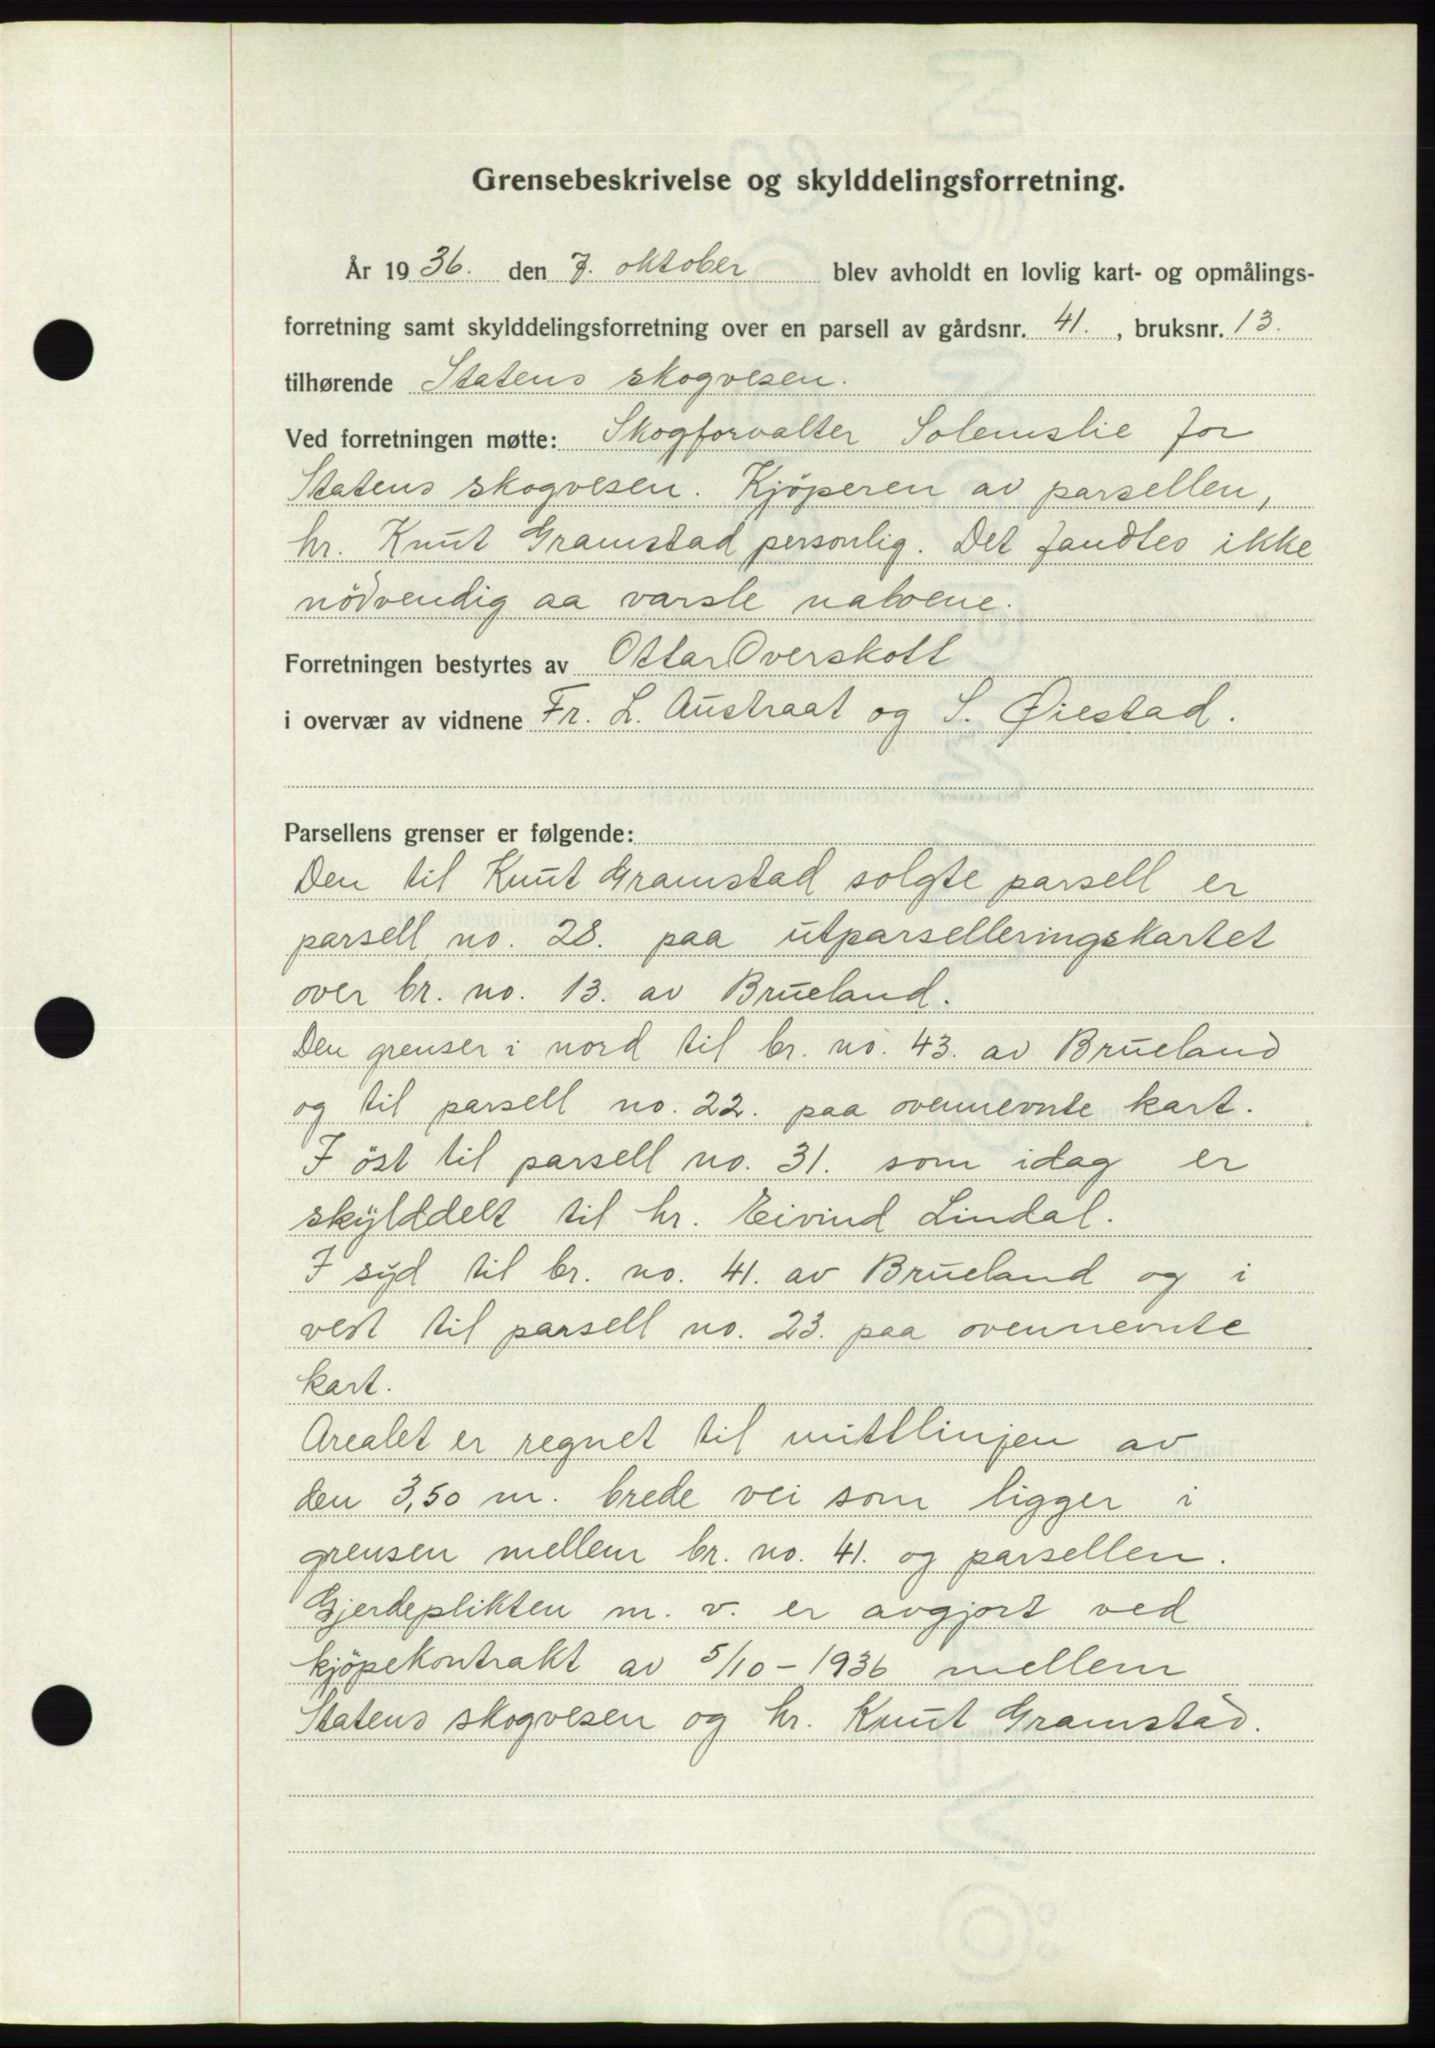 Grensebeskrivelse og skylddelingsforretning.
År 1936. den 7. oktober blev avholdt en lovlig kart- og opmålings-
forretning samt skylddelingsforretning over en parsell av gårdsnr. 41. , bruksnr. 13.
tilhørende Statens skogvesen.
Ved forretningen møtte: Skogforvalter Solemslie for
Statens skogvesen. Kjöperen av parsellen,
hr. Knut Gramstad personlig. Det fandtes ikke
nödvendig aa varsle naboene.
Forretningen bestyrtes av Ottar Overskott
i overvær av vidnene Fr. L. Austraat og S. Øiestad.
Parsellens grenser er følgende:
Den til Knut Gramstad solgte parsell er
parsell no. 28. paa utparselleringskartet
over br. no. 13. av Brueland.
Den grenser i nord til br. no. 43. av Brueland
og til parsell no. 22. paa ovennevnte kart.
I öst til parsell no. 31. som idag er
skylddelt til hr. Eivind Lindal.
I syd til br. no. 41. av Brueland og i
vest til parsell no. 23. paa ovennevnte
kart.
Arealet er regnet til mittlinjen av
den 3,50 m. brede vei som ligger i
grensen mellem br. no. 41. og parsellen.
Gjerdeplikten m. v. er avgjort ved
kjöpekontrakt av 5/10-1936 mellem
Statens skogvesen og hr. Knut Gramstad.